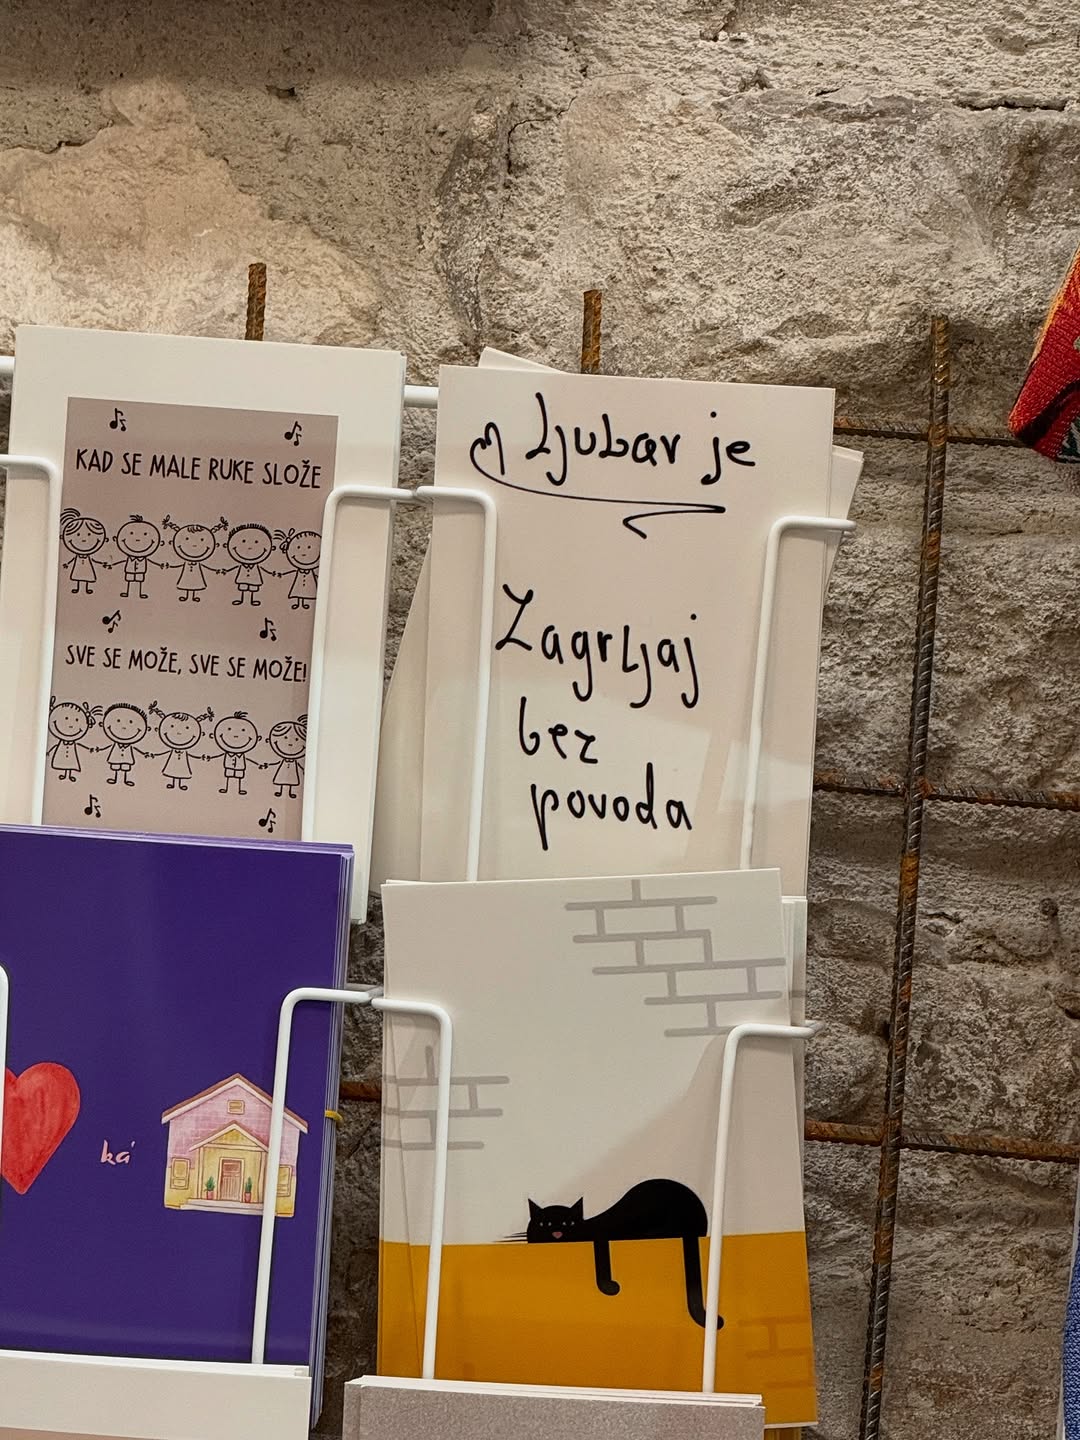 KAD SE MALE RUKE SLOŽE
SVE SE MOŽE, SVE SE MOŽE!
Ljubav je
Zagrljaj
bez
povoda
ká